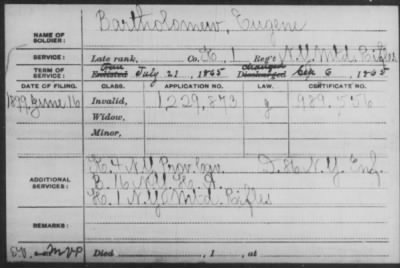 NAME OF SOLDIER: Bartholomew, Eugene
SERVICE: Late rank, Co. H, 1 Reg't N.Y. Mtd. Rifles
TERM OF SERVICE: Enlisted July 21, 1865 Discharged Sep 6, 1865
DATE OF FILING. CLASS. APPLICATION NO. LAW. CERTIFICATE NO.
1899 June 16 Invalid, 1229,873 g 989,556
Widow,
Minor,
ADDITIONAL SERVICES: H. 4 N.Y. Prov. D. H N.Y. Eng.
B. 16 N.Y. H. A.
H. 1 N.Y. Mtd. Rifles
REMARKS:
Died , 1 , at